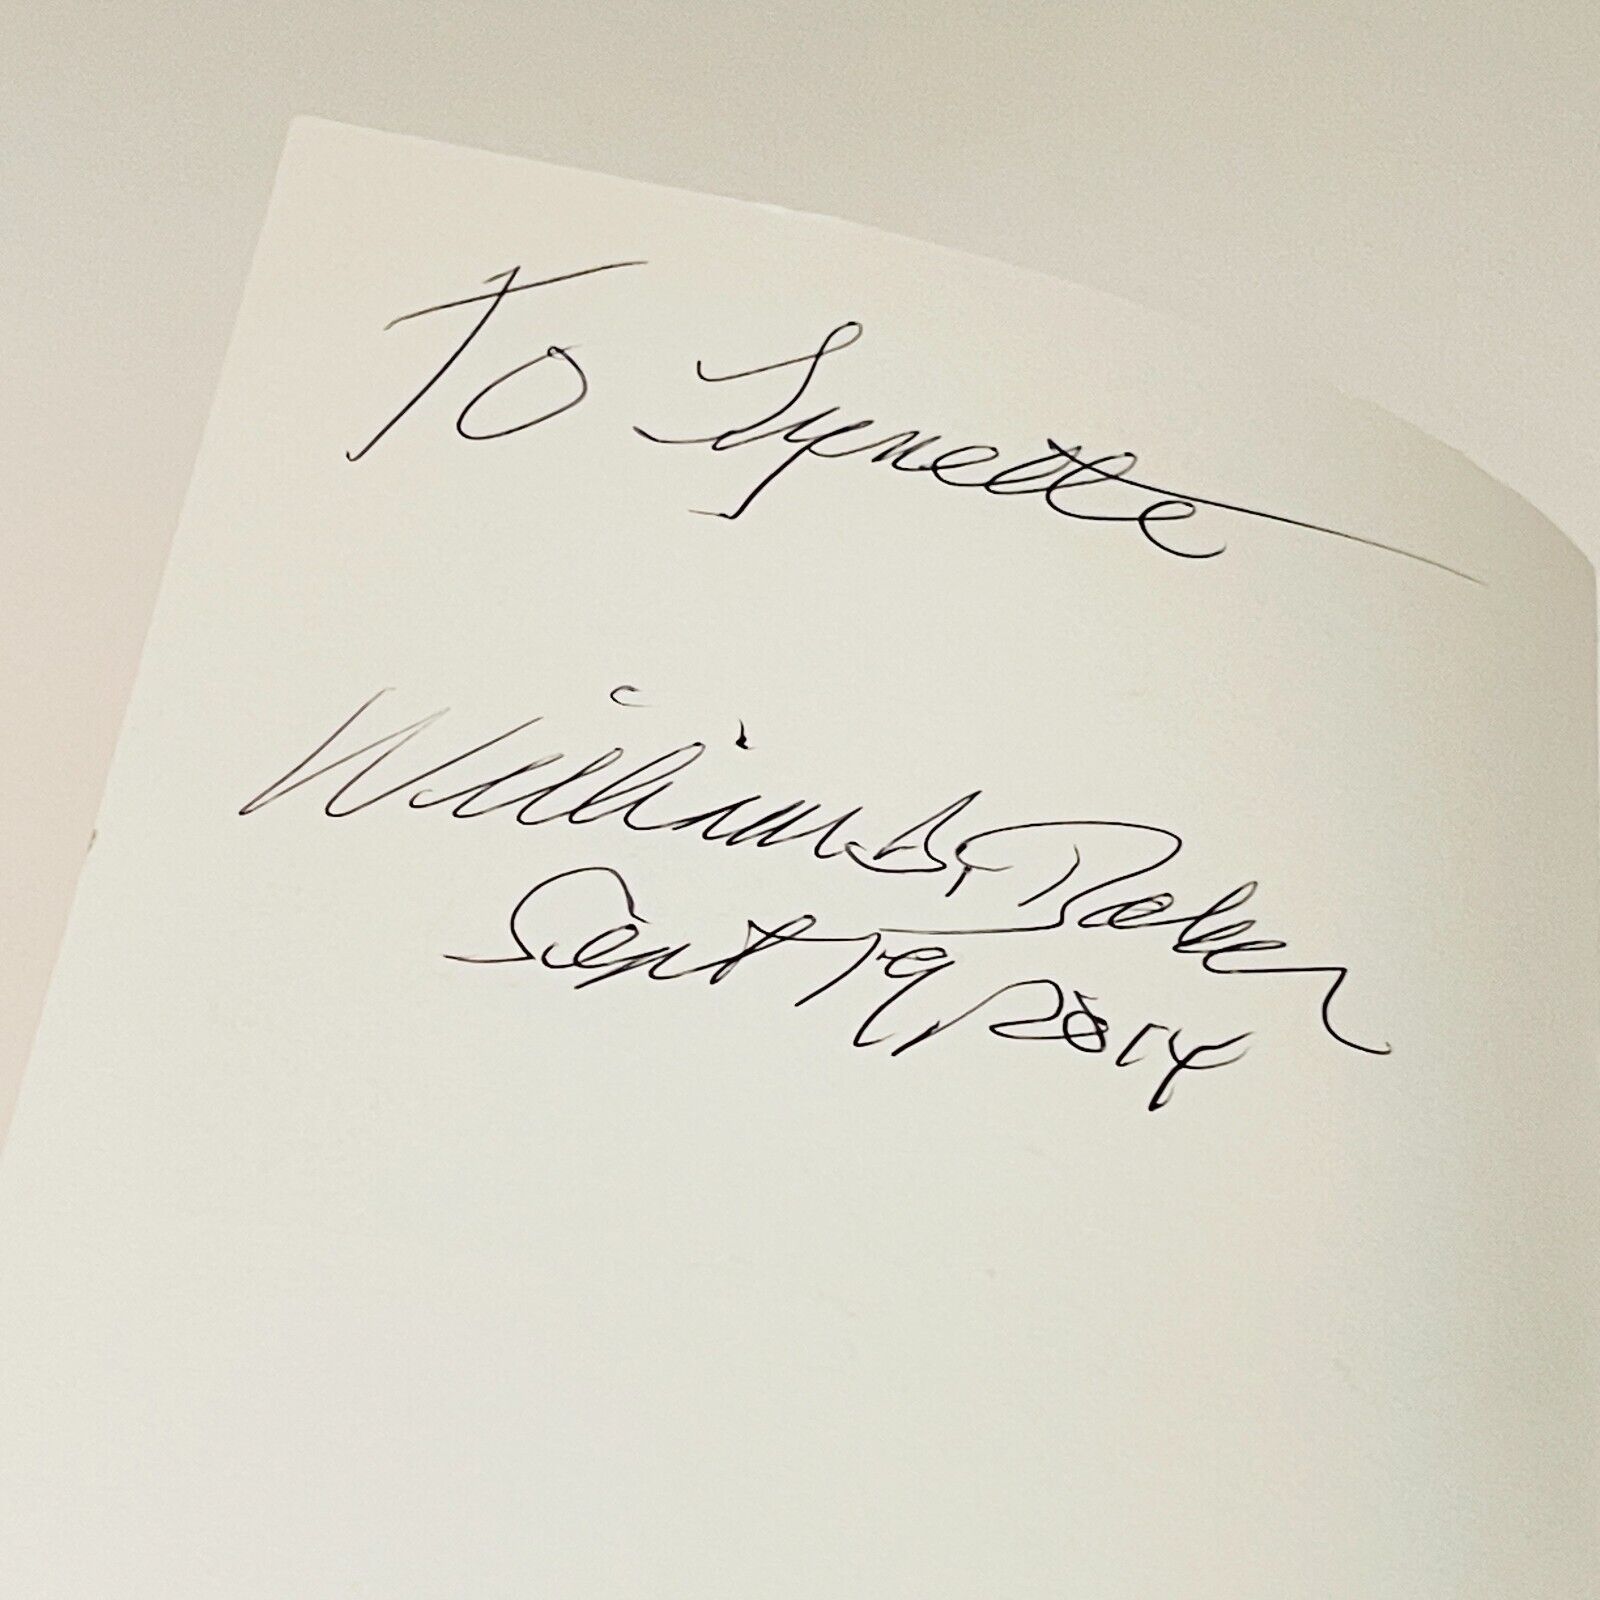 To Lynette
William B. Baker
Sept 19, 2014